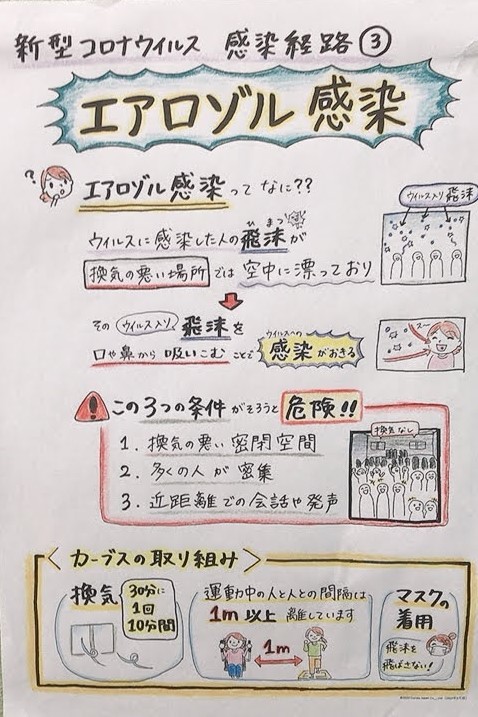 新型コロナウイルス 感染経路③
エアロゾル感染
?
エアロゾル感染って なに??
ウイルスに感染した人の飛沫が
ひまつ
換気の悪い場所では 空中に漂っており
ウイルス入り飛沫
その ウイルス入り 飛沫を
口や鼻から 吸いこむ ことで
ウイルスへの
感染がおきる
スー
この3つの条件がそろうと 危険!!
1. 換気の悪い 密閉空間
2. 多くの人が 密集
3. 近距離での会話や発声
換気なし
カーブスの取り組み
換気
30分に
1回
10分間
運動中の人と人との間隔は
1m以上 離しています
1m
マスクの
着用
飛沫を
飛ばさない!